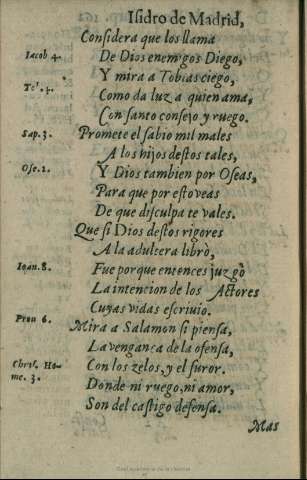 Isidro de Madrid,
Considera que los llama
Iacob 4. De Dios enemigos Diego,
Y mira a Tobias ciego,
To'. 4. Como da luz a quien ama,
Con santo consejo y ruego.
Sap. 3. Promete el sabio mil males
A los hijos destos tales,
Ose. 2. Y Dios tambien por Oseas,
Para que por esto veas
De que disculpa te vales.
Que si Dios destos rigores
A la adultera librò,
Ioan. 8. Fue porque entonces juzgò
La intencion de los Actores
Cuyas vidas escriuio.
Prou 6. Mira a Salamon si piensa,
La vengança de la ofensa,
Chris. Ho- Con los zelos, y el furor.
me. 3. Donde ni ruego, ni amor,
Son del castigo defensa.
Mas